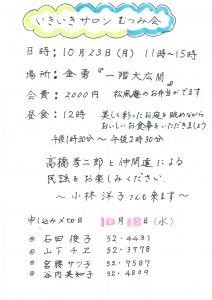 いきいきサロン むつみ会
日時：10月23日(月) 11時〜15時
場所：金勇『一階大広間』
会費：2000円 松風庵のお弁当がでます
昼食：12時 美しく彩ったお庭を眺めながら
おいしいお食事をいただきましょう
午後1時30分〜午後2時30分
高橋孝二郎と仲間達による
民謡をお楽しみください
〜小林洋子さんも来ます〜
申し込み〆切日 10月18日(水)
◎ 石田俊子 52-4431
◎ 山下チヱ 52-3778
◎ 宮腰サツ子 52-7587
◎ 谷内美知子 52-4809